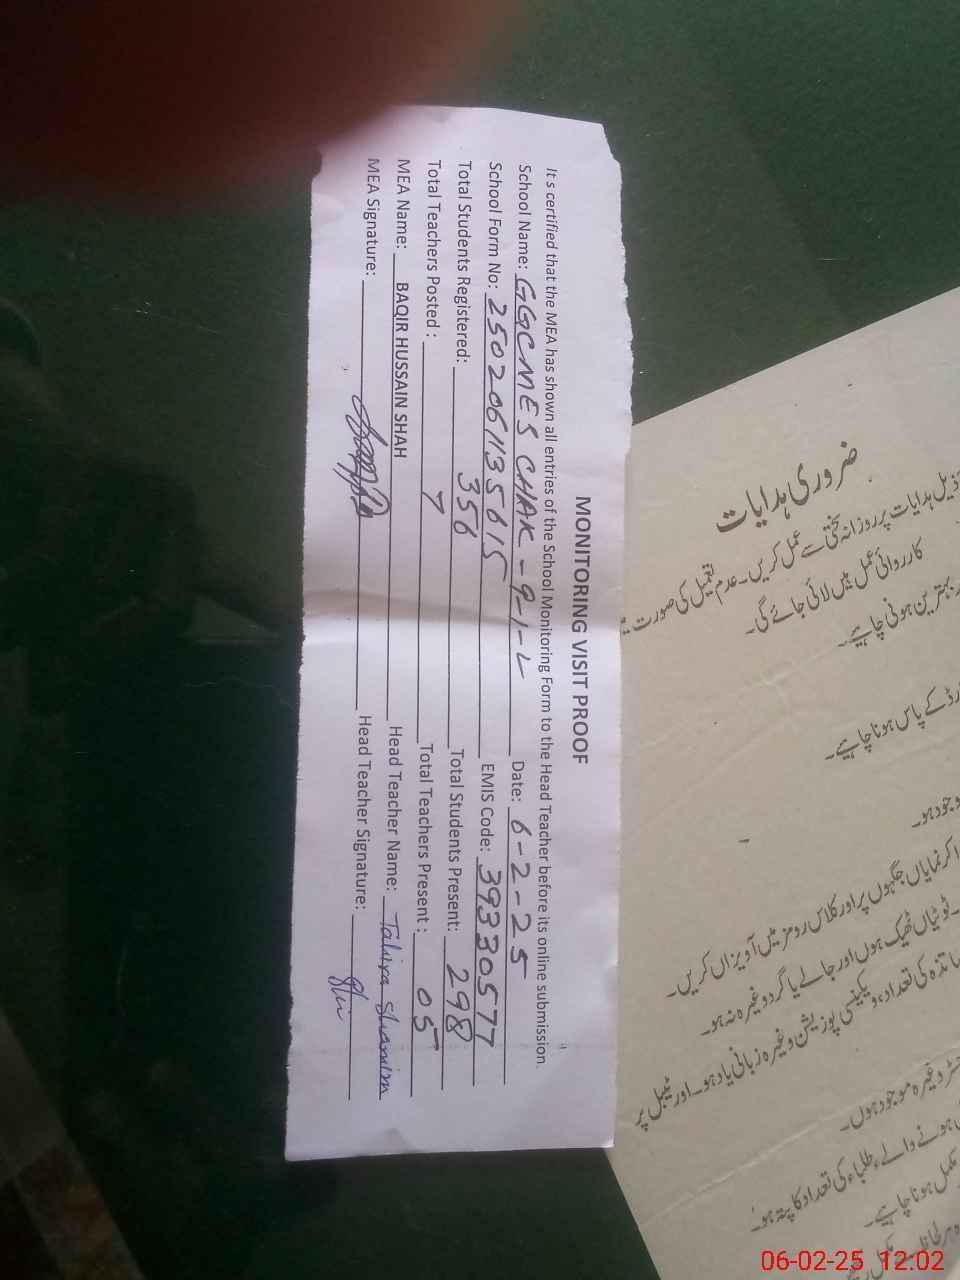 MONITORING VISIT PROOF
It s certified that the MEA has shown all entries of the School Monitoring Form to the Head Teacher before its online submission.
School Name: GGCMES CHAK - 9-1-L Date: 6-2-25
School Form No: 2502061135015 EMIS Code: 39330577
Total Students Registered: 356 Total Students Present: 298
Total Teachers Posted : 7 Total Teachers Present : 05
MEA Name: BAQIR HUSSAIN SHAH Head Teacher Name: Tahira Shamim
MEA Signature: Head Teacher Signature:
ضروری ہدایات
ذیل ہدایات پر روزانہ سختی سے عمل کریں۔ عدم تعمیل کی صورت
کارروائی عمل میں لائی جائے گی۔
بہترین ہونی چاہیے۔
کے پاس ہونا چاہیے۔
وجود ہو۔
کر نمایاں جگہوں پر اور کلاس رومز میں آویزاں کریں۔
۔ ٹوٹیاں ٹھیک ہوں اور جالے یا گرد وغیرہ نہ ہو۔
کی تعداد، ویکینسی پوزیشن وغیرہ زبانی یاد ہو۔ اور ٹیبل پر
وغیرہ موجود ہوں۔
ہونے والے طلباء کی تعداد کا پتہ ہو۔
مکمل ہونا چاہیے۔
06-02-25 12:02